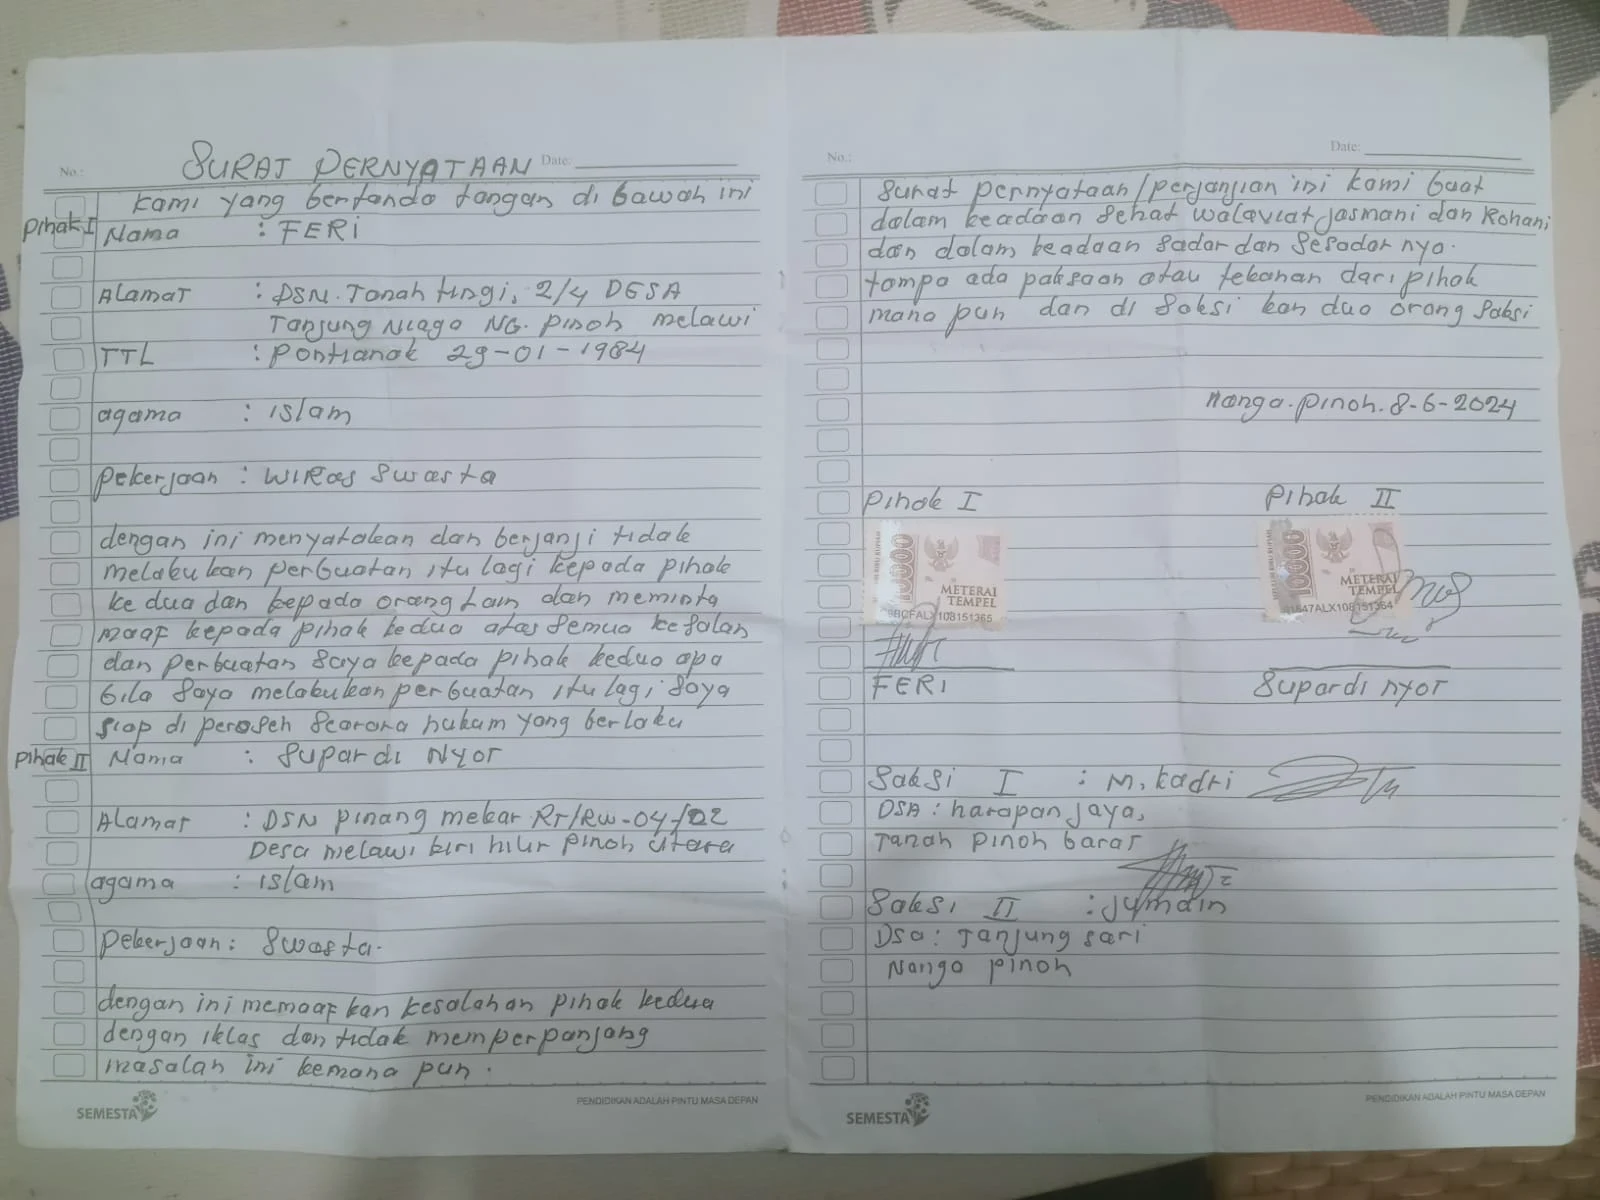 No.: SURAT PERNYATAAN Date:
Kami yang bertanda tangan di bawah ini
Pihak I Nama : FERI
ALamat : DSN. Tanah tingi, 2/4 DESA
Tanjung Niaga NG. Pinoh melawi
TTL : Pontianak 29-01-1984
agama : islam
Pekerjaan : WIRas Swasta
dengan ini menyatakan dan berjanji tidak
melakukan perbuatan itu lagi kepada pihak
ke dua dan kepada orang lain dan meminta
maaf kepada pihak kedua atas semua kesalan
dan perbuatan saya kepada pihak kedua apa
bila saya melakukan perbuatan itu lagi saya
siap di peroseh searara hukam yang berlaku
Pihak II Nama : Supardi Nyor
ALamat : DSN pinang mekar RT/RW-04/02
Desa melawi kiri hilir Pinoh utara
agama : islam
Pekerjaan : Swasta.
dengan ini memaaf kan kesalahan pihak kedua
dengan iklas dan tidak memperpanjang
masalah ini kemana pun.
SEMESTA PENDIDIKAN ADALAH PINTU MASA DEPAN
No.: Date:
Surat pernyataan/perjanjian ini kami buat
dalam keadaan sehat walaviat jasmani dan Rohani
dan dalam keadaan sadar dan sesadar nya.
tampa ada paksaan atau tekanan dari pihak
mana pun dan di saksi kan dua orang saksi
nanga. pinoh. 8-6-2024
Pihak I Pihak II
10000 METERAI TEMPEL ALX108151365
10000 METERAI TEMPEL 47ALX108151364
FERI Supardi nyor
Saksi I : M. kadri
DSA : harapan jaya,
Tanah Pinoh barat
Saksi II : jumain
Dsa : Tanjung sari
Nanga pinoh
SEMESTA PENDIDIKAN ADALAH PINTU MASA DEPAN